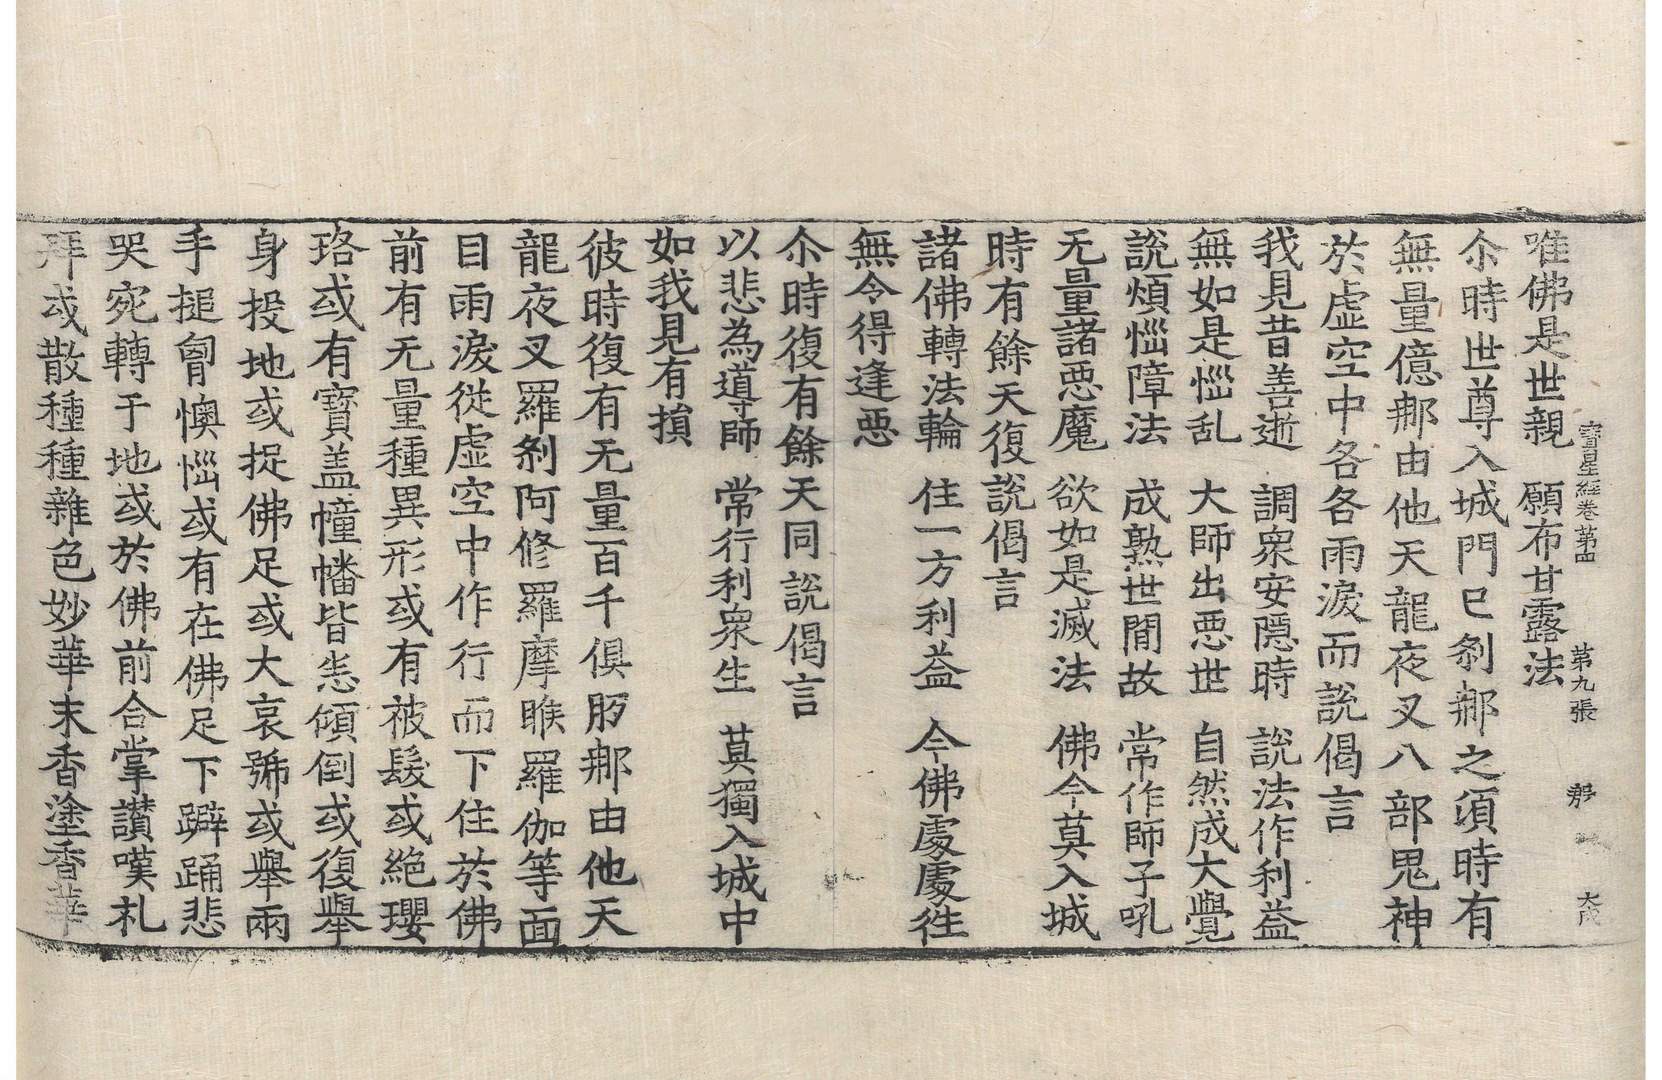 寶星經卷第四 第九張 大成
唯佛是世親 願布甘露法
尒時世尊入城門已刹那之湏時有
無量億那由他天龍夜叉八部鬼神
於虛空中各各雨淚而說偈言
我見昔善逝 調衆安隱時 說法作利益
無如是惱乱 大師出惡世 自然成大覺
說煩惱障法 成熟世間故 常作師子吼
无量諸惡魔 欲如是滅法 佛今莫入城
時有餘天復說偈言
諸佛轉法輪 住一方利益 今佛處處徃
無令得逢惡
尒時復有餘天同說偈言
以悲為導師 常行利衆生 莫獨入城中
如我見有損
彼時復有无量百千俱胝那由他天
龍夜叉羅剎阿修羅摩睺羅伽等面
目雨淚從虛空中作行而下住於佛
前有无量種異形或有被髮或絕瓔
珞或有寶盖幢幡皆悉傾倒或復舉
身投地或捉佛足或大哀號或舉兩
手搥胷懊惱或有在佛足下躃踊悲
哭宛轉于地或於佛前合掌讃嘆札
拜或散種種雜色妙華末香塗香華